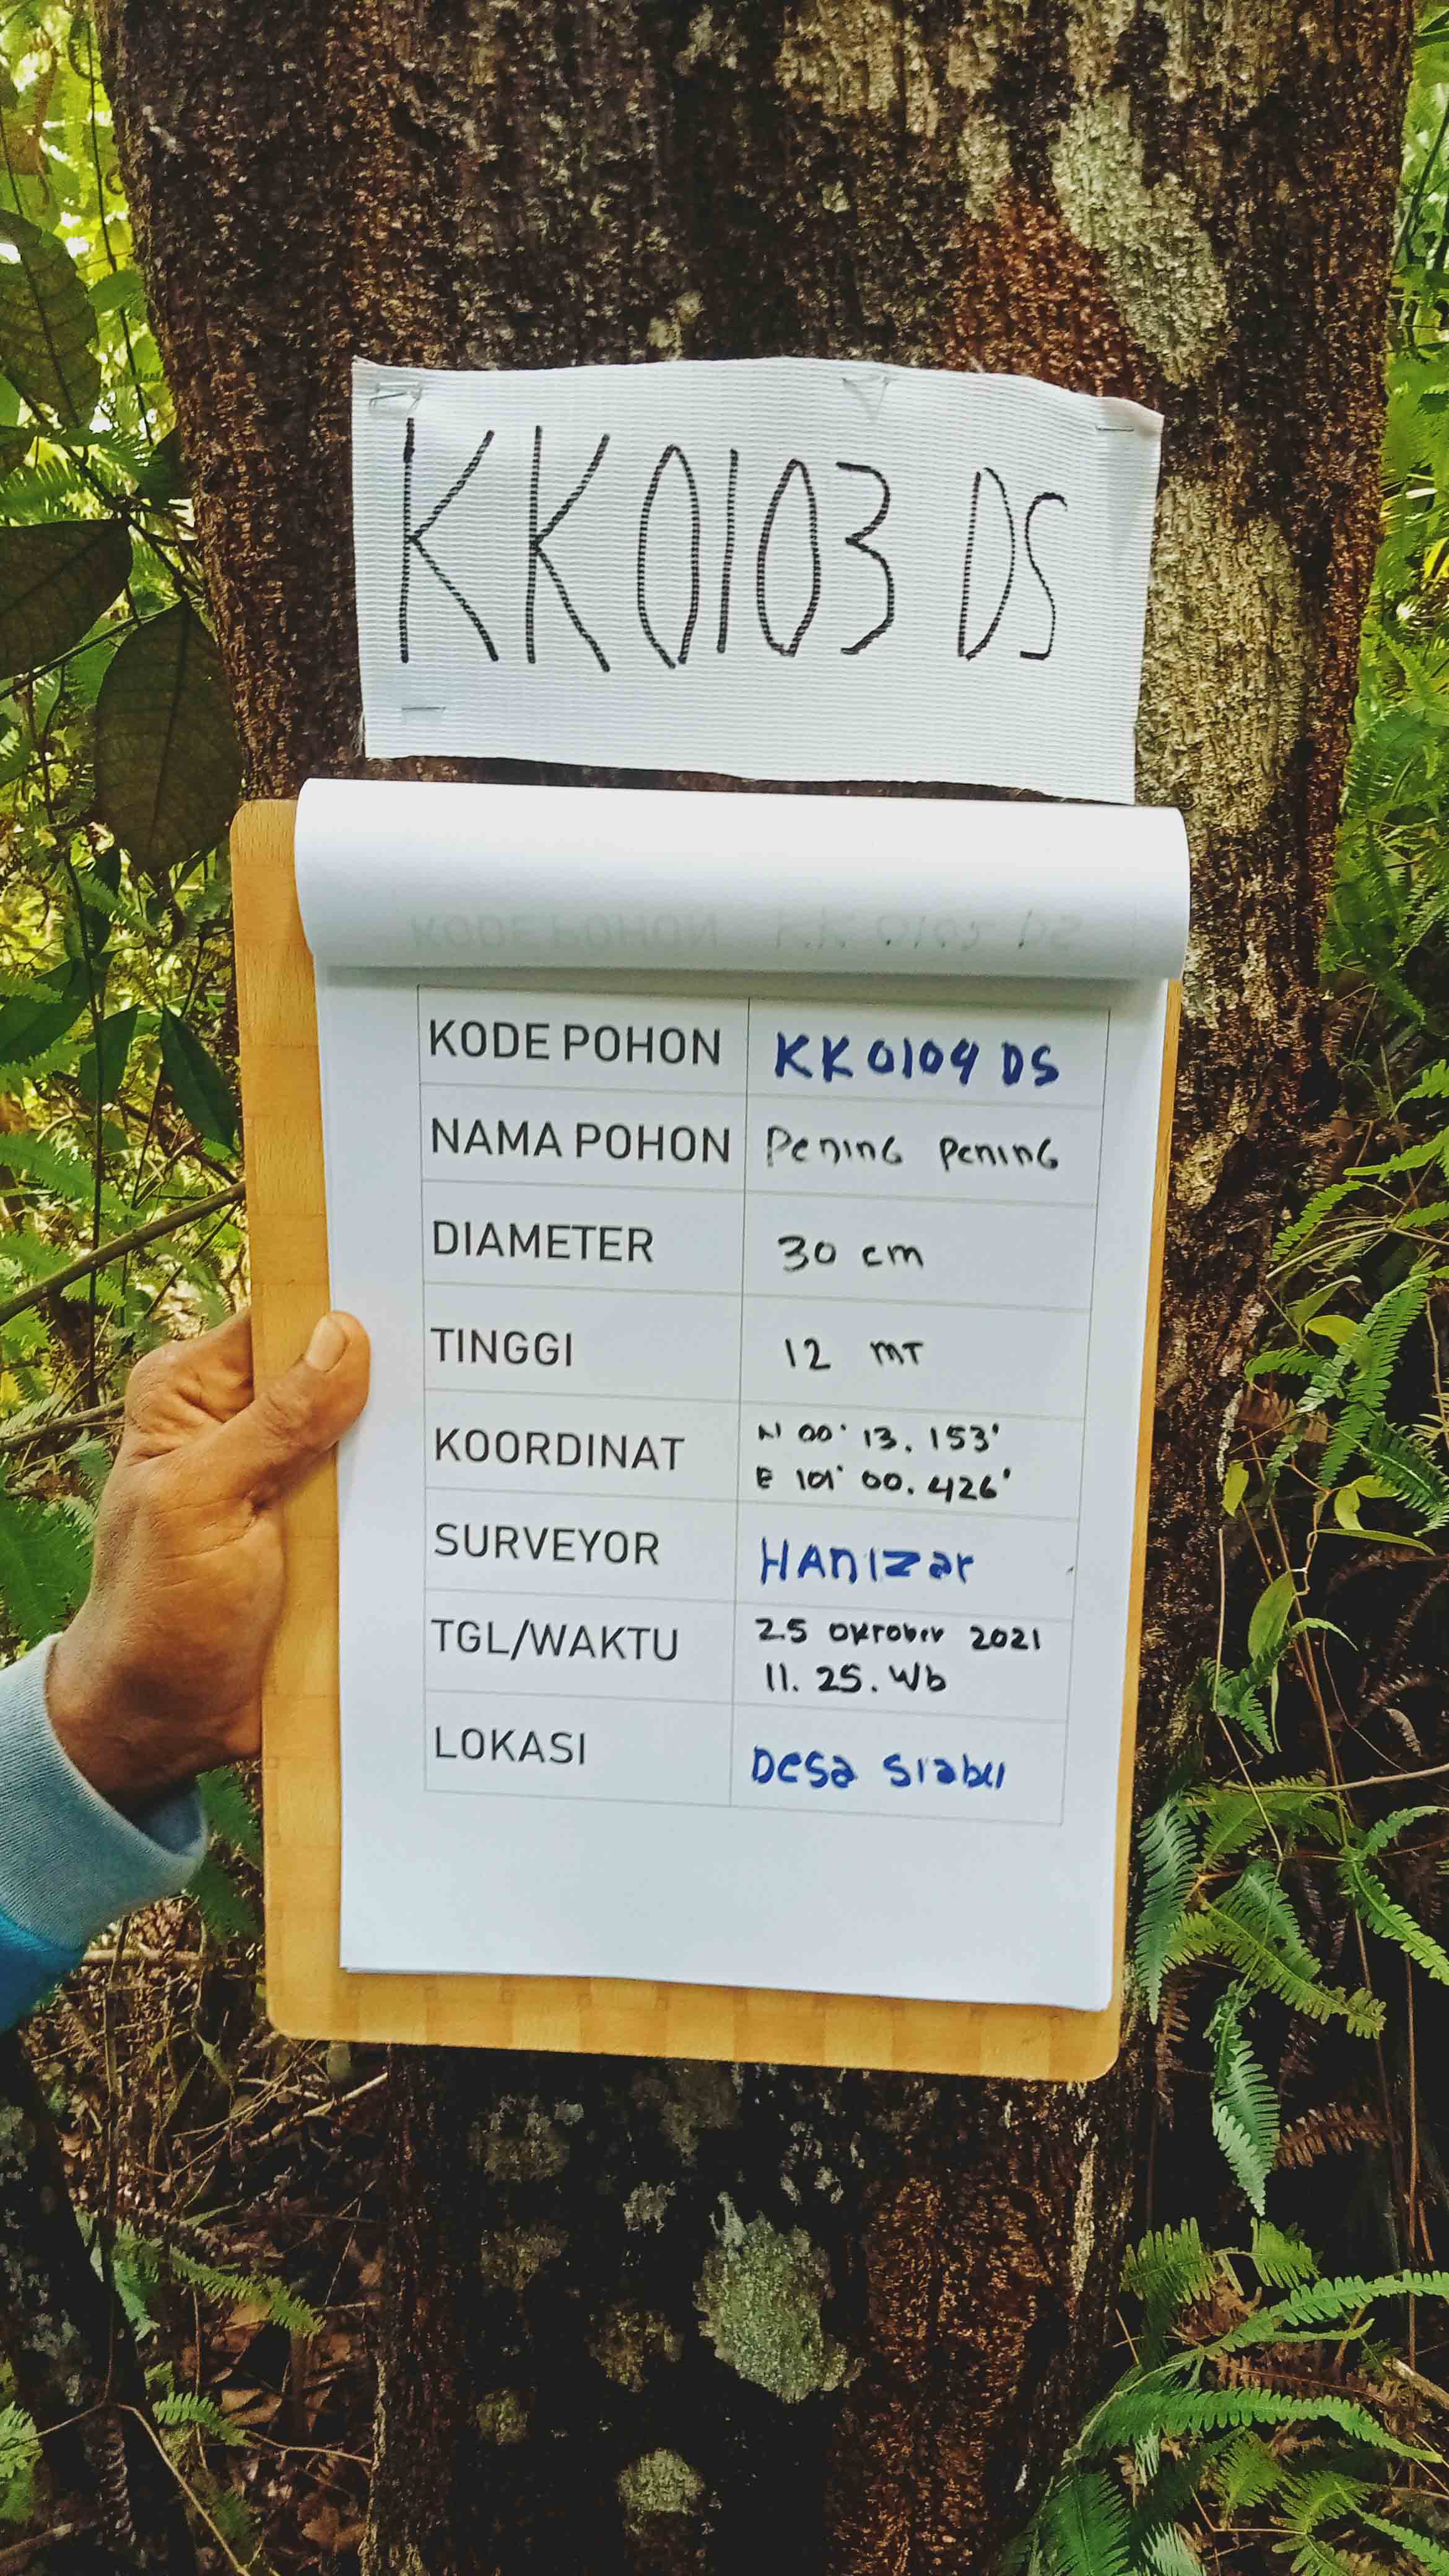 KK0103 DS
KODE POHON KK 0103 DS
KODE POHON KK0104 DS
NAMA POHON Pening Pening
DIAMETER 30 cm
TINGGI 12 MT
KOORDINAT N 00° 13. 153'
E 101° 00. 426'
SURVEYOR HANIZar
TGL/WAKTU 25 Oktober 2021
11. 25. Wb
LOKASI Desa Siabu